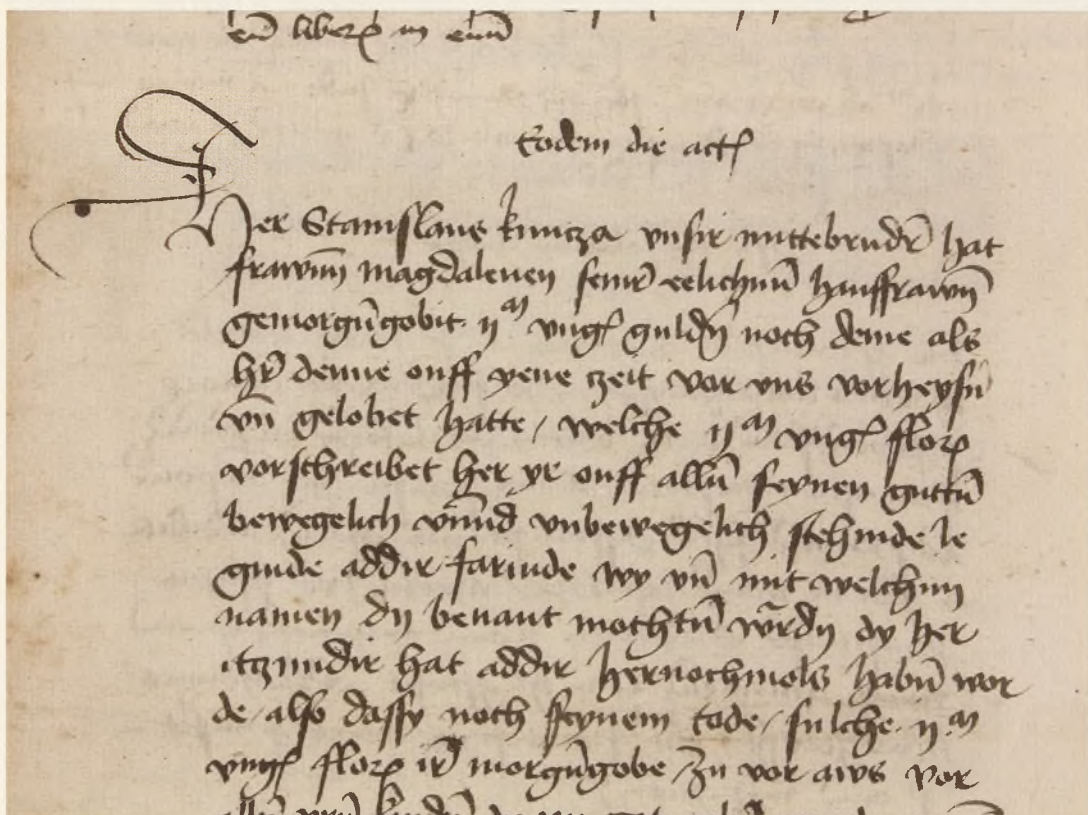 eū liberꝝ in eum̄
Eodem die actꝭ
Her Stanislaus kuncza vnsir mittebrudr̄ hat
frawin̄ magdalenen seinr̄ eelichin̄ hausfrawn̄
gemorgūgobit ijᵐ vngꝭ guldn̄ noch deme als
hr̄ denne off yene czeit vor vns vorheysn̄
vn̄ gelobet hatte / welche ijᵐ vngꝭ florꝝ
vorschreibet her yr off allū seynen guttū
bewegelich vn̄nd vnbewegelich stehinde le
ginde addir farinde wy vn̄ mit welchin
namen dy benant mochtū wr̄dn dy her
itczundir hat addir hernochmols habū wor
de also dassy noch seynem tode / sulche ijᵐ
vngꝭ florꝝ ir̄ morgūgobe / Zu vor aws vor